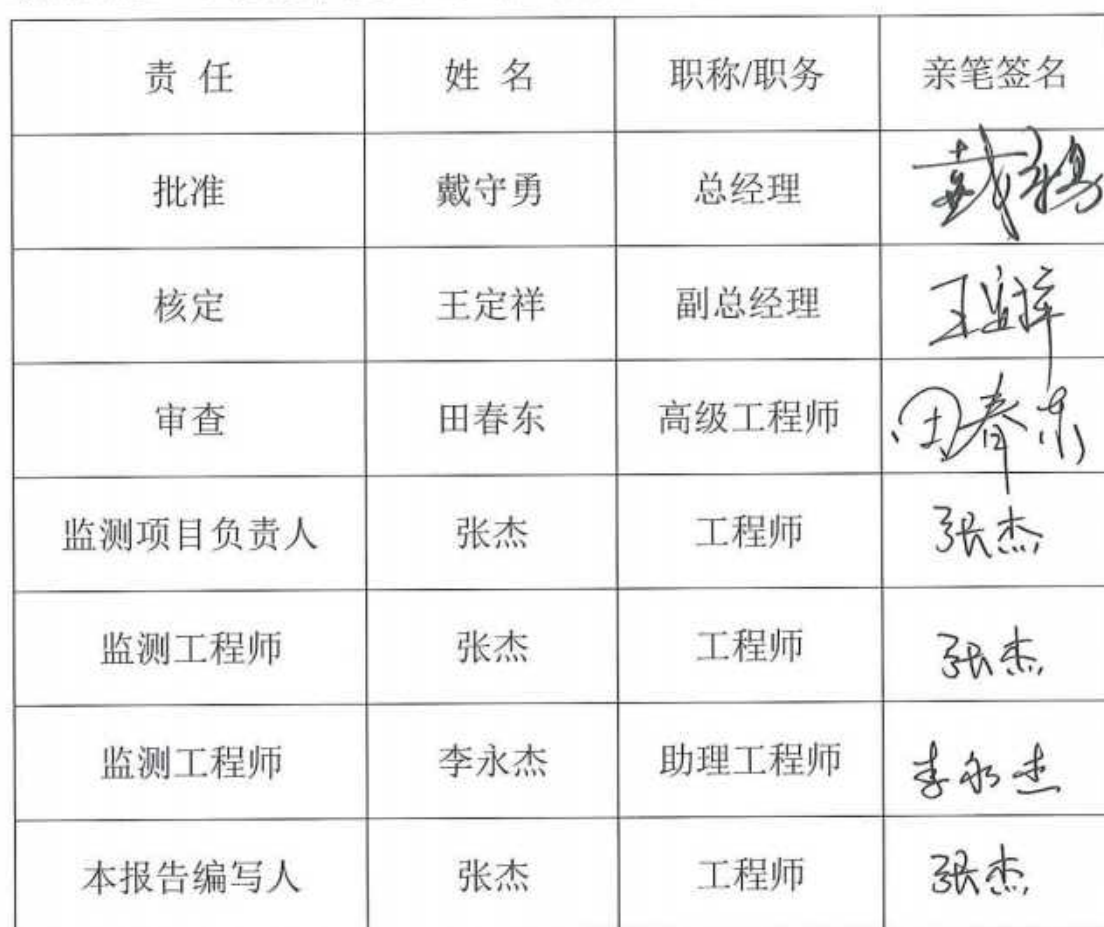 责 任 姓 名 职称/职务 亲笔签名
批准 戴守勇 总经理
核定 王定祥 副总经理
审查 田春东 高级工程师 田春东
监测项目负责人 张杰 工程师 张杰
监测工程师 张杰 工程师 张杰
监测工程师 李永杰 助理工程师 李永杰
本报告编写人 张杰 工程师 张杰